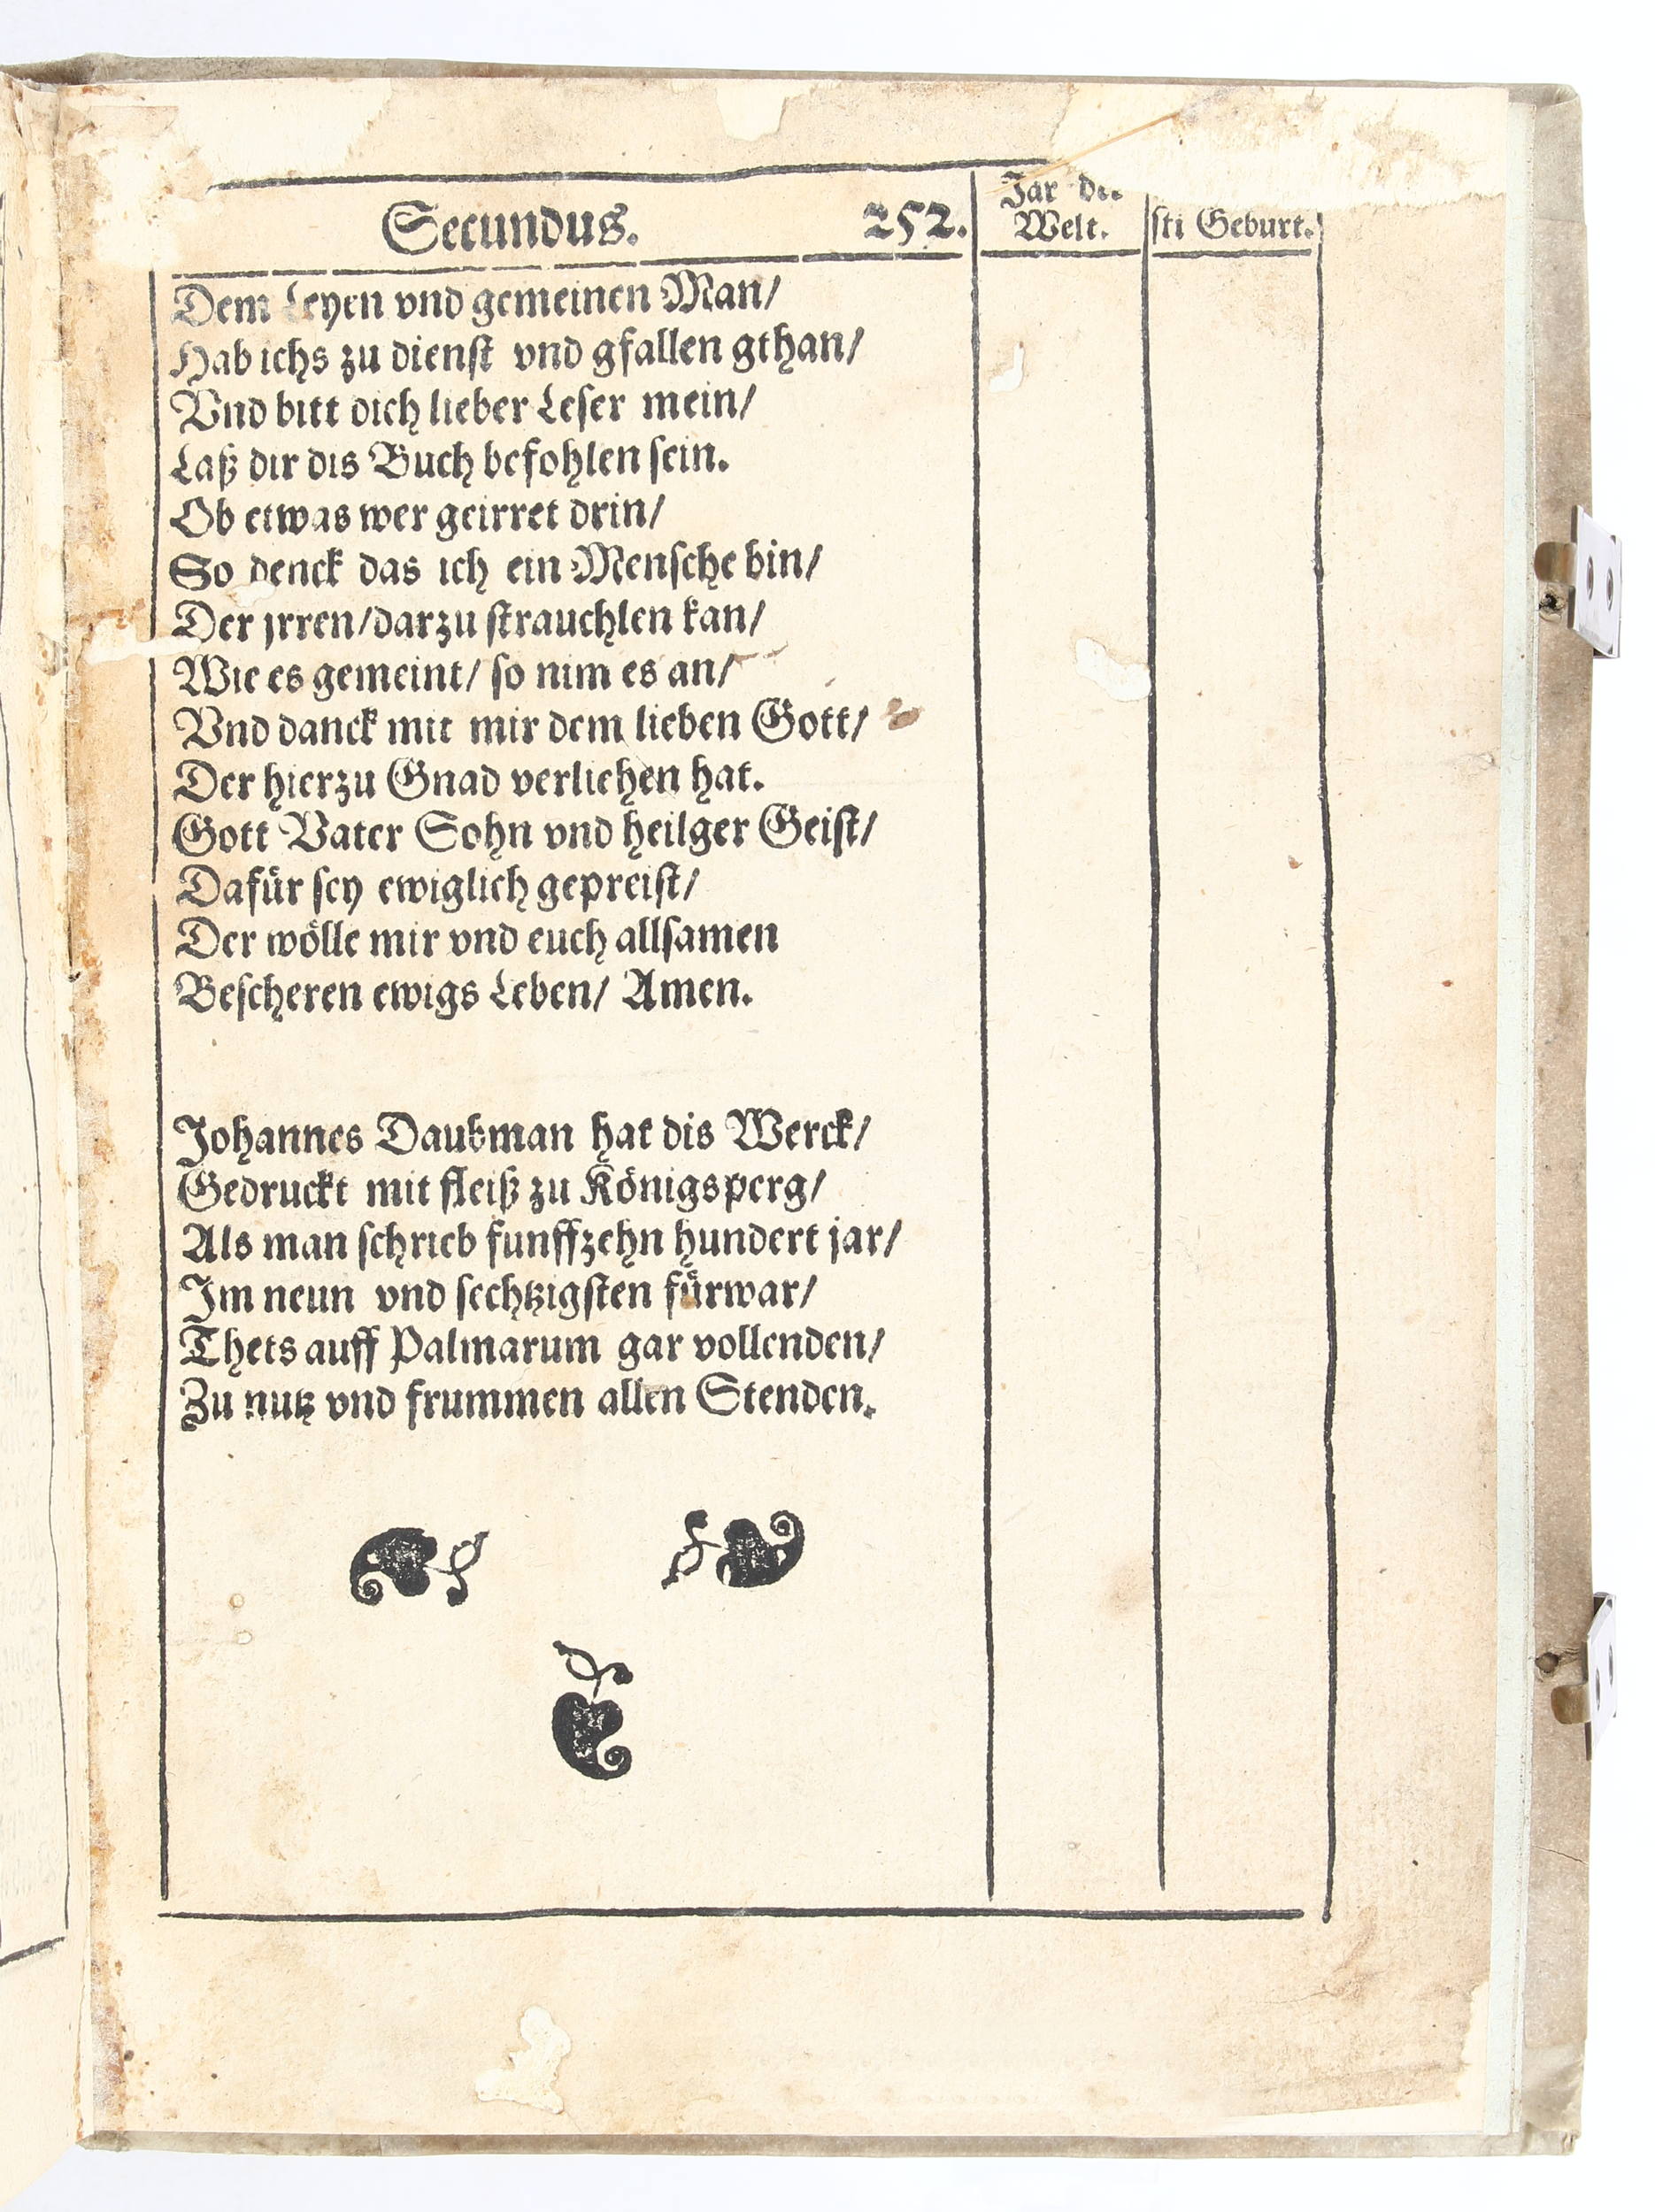 Secundus. 252.
Jar der
Welt.
sti Geburt.
Dem Leyen vnd gemeinen Man/
Hab ichs zu dienſt vnd gfallen gthan/
Vnd bitt dich lieber Leſer mein/
Laß dir dis Buch befohlen ſein.
Ob etwas wer geirret drin/
So denck das ich ein Menſche bin/
Der jrren/darzu ſtrauchlen kan/
Wie es gemeint/ ſo nim es an/
Vnd danck mit mir dem lieben Gott/
Der hierzu Gnad verliehen hat.
Gott Vater Sohn vnd heilger Geiſt/
Dafür ſey ewiglich gepreiſt/
Der wölle mir vnd euch allſamen
Beſcheren ewigs Leben/ Amen.
Johannes Daubman hat dis Werck/
Gedruckt mit fleiß zu Königsperg/
Als man ſchrieb funffzehn hundert jar/
Im neun vnd ſechtzigſten fürwar/
Thets auff Palmarum gar vollenden/
Zu nutz vnd frummen allen Stenden.